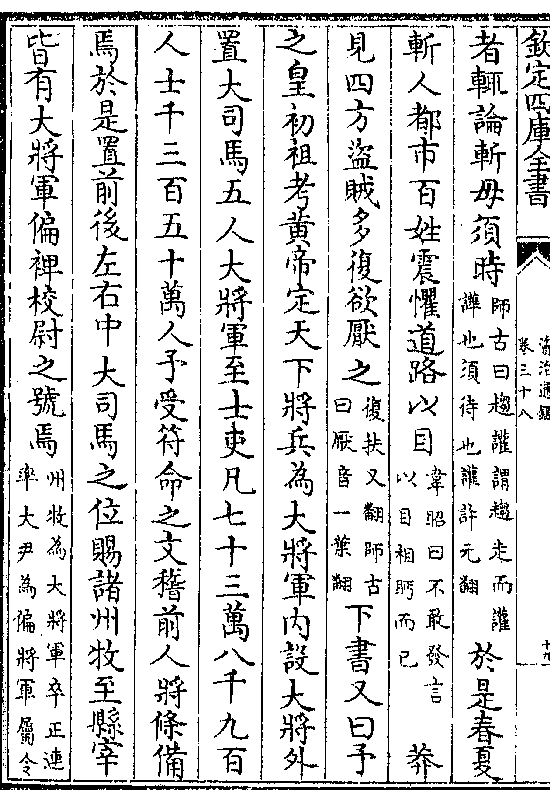 欽定四庫全書
資治通鑑
卷三十八
者輒論斬毋須時師古曰趨讙謂趨走而讙譁也須待也讙許元翻於是春夏
斬人都市百姓震懼道路以目韋昭曰不敢發言以目相眄而已莽
見四方盜賊多復欲厭之復扶又翻師古曰厭音一葉翻下書又曰予
之皇初祖考黃帝定天下將兵為大將軍內設大將外
置大司馬五人大將軍至士吏凡七十三萬八千九百
人士千三百五十萬人予受符命之文稽前人將條備
焉於是置前後左右中大司馬之位賜諸州牧至縣宰
皆有大將軍偏裨校尉之號焉州牧為大將軍卒正連率大尹為偏將軍屬令